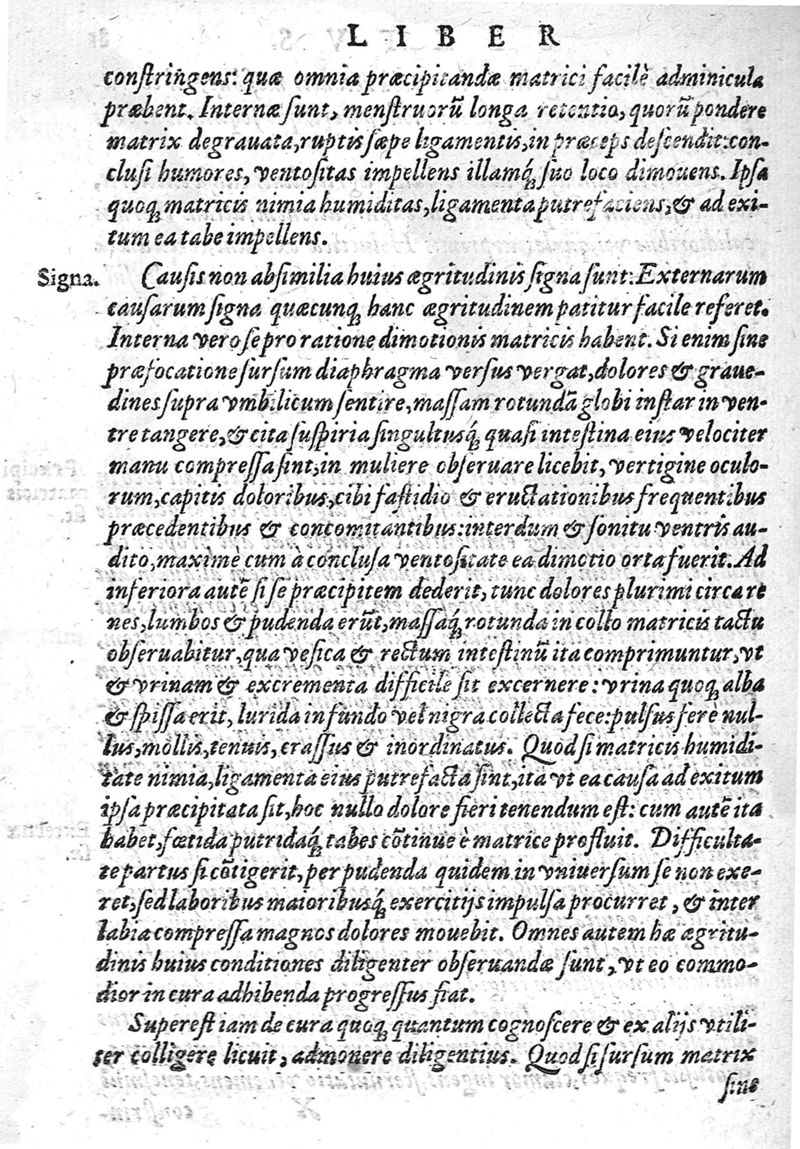 LIBER
constringens: quæ omnia præcipitandæ matrici facilè adminicula
præbent. Internæ sunt, menstruorũ longa retentio, quorũ pondere
matrix degrauata, ruptis sæpe ligamentis, in præceps descendit: con-
clusi humores, ventositas impellens illamq́; suo loco dimouens. Ipsa
quoq; matricis nimia humiditas, ligamenta putrefaciens, & ad exi-
tum ea tabe impellens.
Signa. Causis non absimilia huius ægritudinis signa sunt: Externarum
causarum signa quæcunq; hanc ægritudinem patitur facile referet.
Interna vero se pro ratione dimotionis matricis habent. Si enim sine
præfocatione sursum diaphragma versus vergat, dolores & graue-
dines supra vmbilicum sentire, massam rotundã globi instar in ven-
tre tangere, & cita suspiria singultusq́; quasi intestina eius velociter
manu compressa sint, in muliere obseruare licebit, vertigine oculo-
rum, capitis doloribus, cibi fastidio & eructationibus frequentibus
præcedentibus & concomitantibus: interdum & sonitu ventris au-
dito, maximè cum à conclusa ventositate ea dimotio orta fuerit. Ad
inferiora autẽ si se præcipitem dederit, tunc dolores plurimi circa re
nes, lumbos & pudenda erũt, massaq́; rotunda in collo matricis tactu
obseruabitur, qua vesica & rectum intestinũ ita comprimuntur, vt
& vrinam & excrementa difficile sit excernere: vrina quoq; alba
& spissa erit, lurida in fundo vel nigra collecta fece: pulsus ferè nul-
lus, mollis, tenuis, crassus & inordinatus. Quod si matricis humidi-
tate nimia, ligamenta eius putrefacta sint, ita vt ea causa ad exitum
ipsa præcipitata sit, hoc nullo dolore fieri tenendum est: cum autẽ ita
habet, fœtida putridaq́; tabes cõtinue è matrice profluit. Difficulta-
te partus si cõtigerit, per pudenda quidem in vniuersum se non exe-
ret, sed laboribus maioribusq́; exercitijs impulsa procurret, & inter
labia compressa magnos dolores mouebit. Omnes autem hæ ægritu-
dinis huius conditiones diligenter obseruandæ sunt, vt eo commo-
dior in cura adhibenda progressus fiat.
Superest iam de cura quoq; quantum cognoscere & ex alijs vtili-
ter colligere licuit, admonere diligentius. Quod si sursum matrix
sine